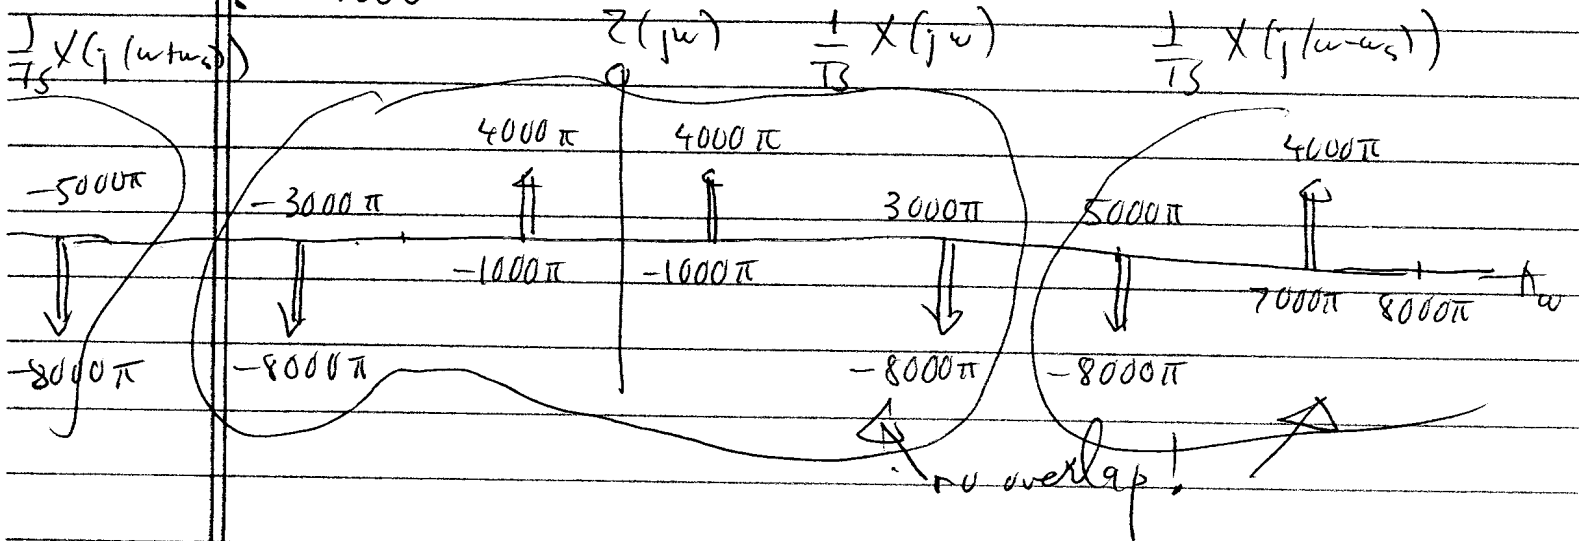 1/Ts X(j(ω+ωs)) Z(jω) 1/Ts X(jω) 1/Ts X(j(ω-ωs))
4000π 4000π 4000π
-5000π -3000π 3000π 5000π
-1000π -1000π 7000π 8000π ω
-8000π -8000π -8000π -8000π
no overlap!